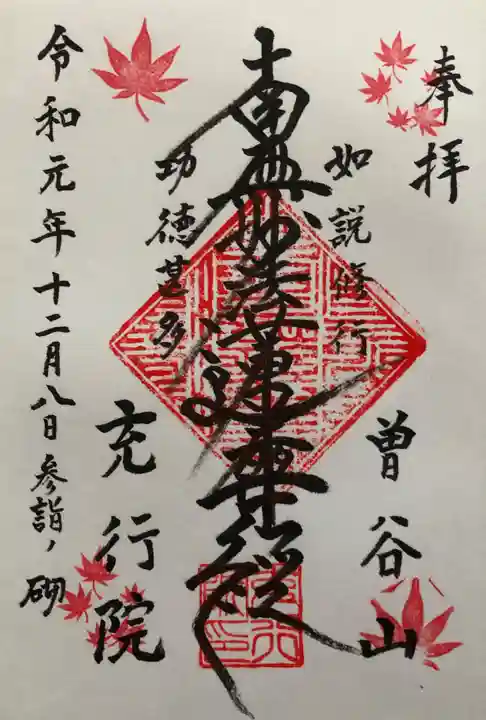 奉拝
如説修行
曽谷山
南無妙法蓮華経
功徳甚多
充行院
令和元年十二月八日参詣ノ砌